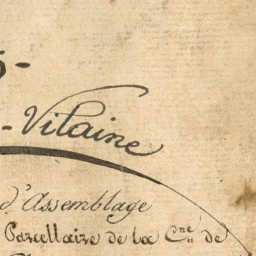 -Vilaine
d'Assemblage
Parcellaire de la Cne de